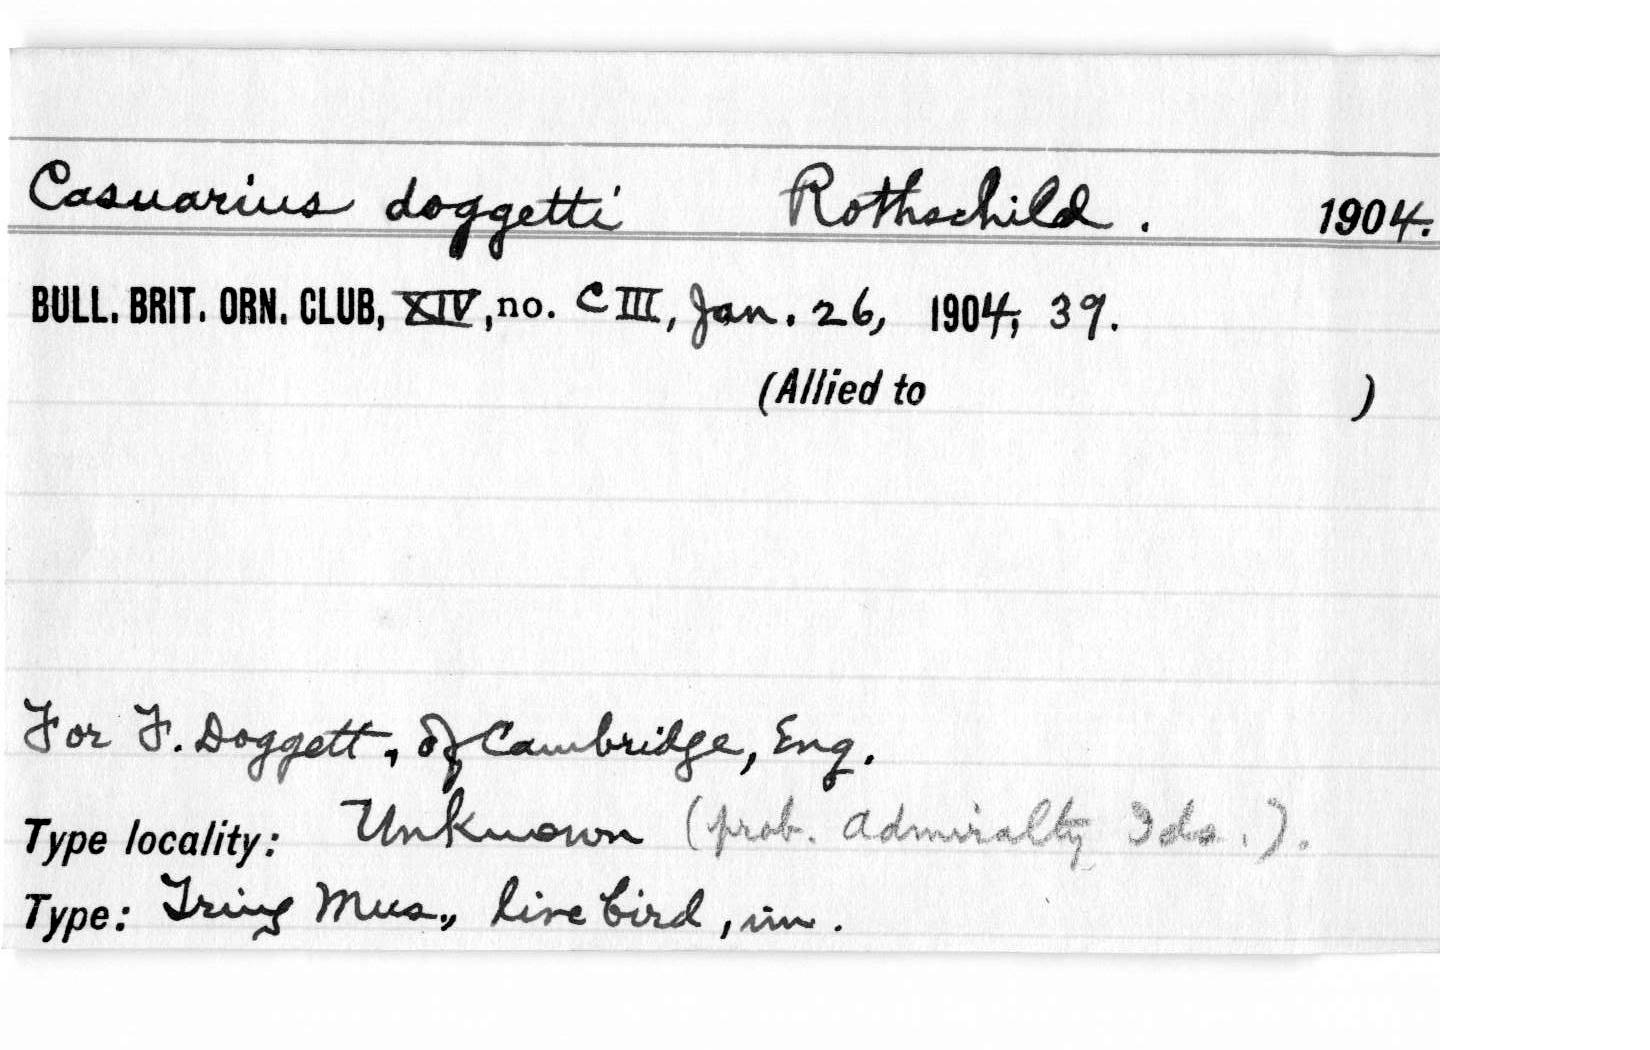 Casuarius doggetti Rothschild. 1904.
BULL. BRIT. ORN. CLUB, XIV, no. CIII, Jan. 26, 1904; 39.
(Allied to )
For F. Doggett, of Cambridge, Eng.
Type locality: Unknown (prob. Admiralty Ids.).
Type: Tring Mus., live bird, im.